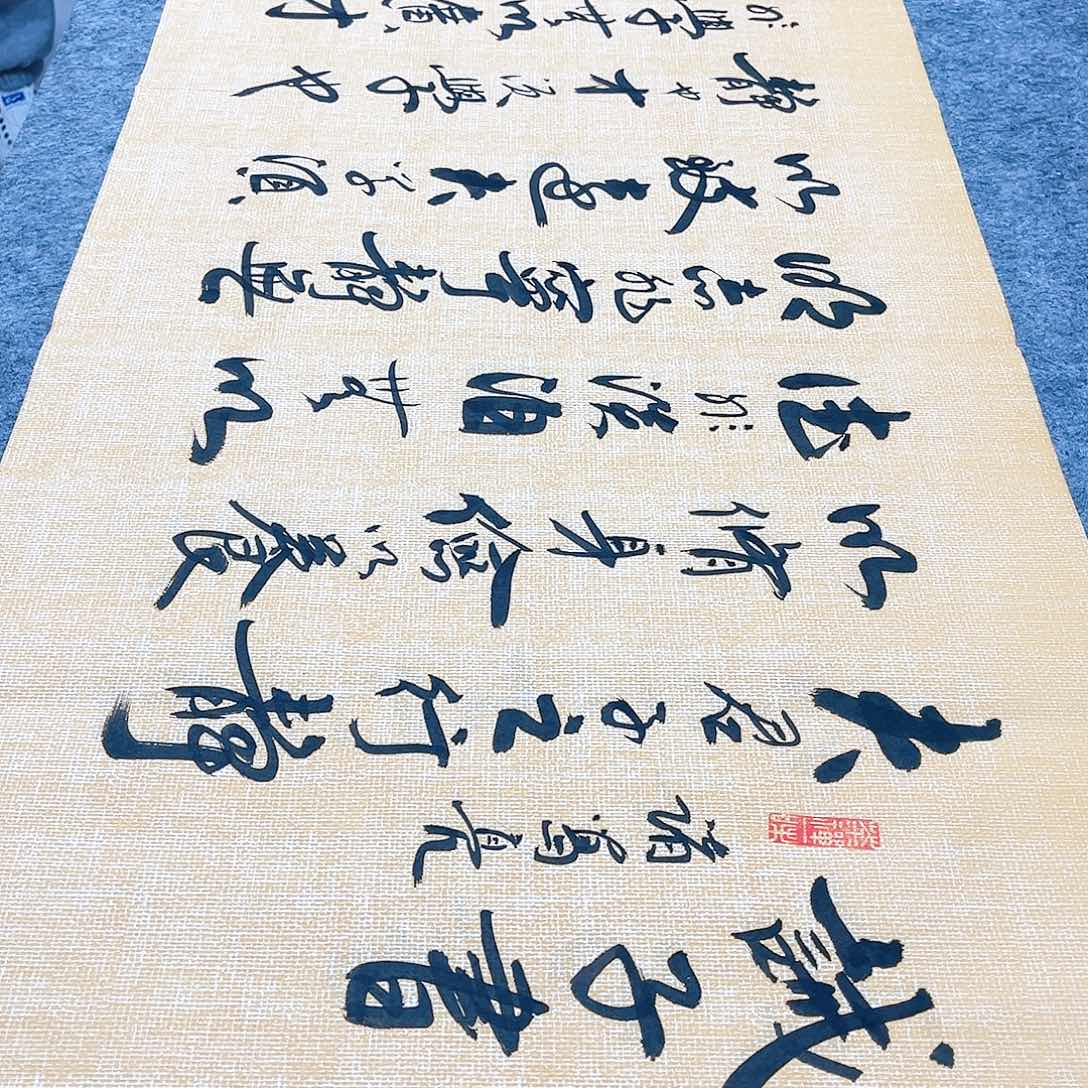 誡子書
諸葛亮
夫君子之行靜
以脩身儉以養
德非淡泊無以
明志非寧靜無
以致遠夫学須
靜也才須學也
非學無以廣才